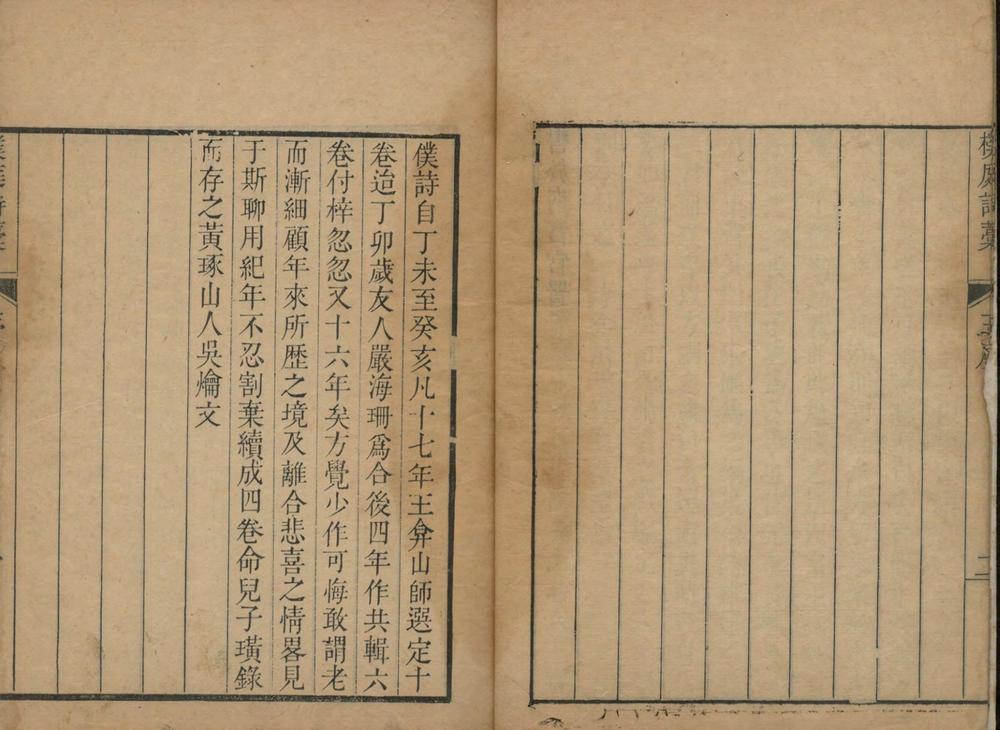 樸庭詩藁
二
僕詩自丁未至癸亥凡十七年王弇山師選定十
卷迨丁卯歲友人嚴海珊爲合後四年作共輯六
卷付梓忽忽又十六年矣方覺少作可悔敢謂老
而漸細顧年來所歴之境及離合悲喜之情畧見
于斯聊用紀年不忍割棄續成四卷命兒子璜錄
而存之黃琢山人吳爚文